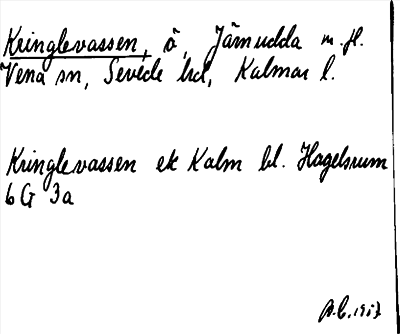 Kringlevassen, ö, Järnudda m.fl.
Vena sn, Sevede hd, Kalmar l.
Kringlevassen ek Kalm bl. Hagelsrum
6 G 3a